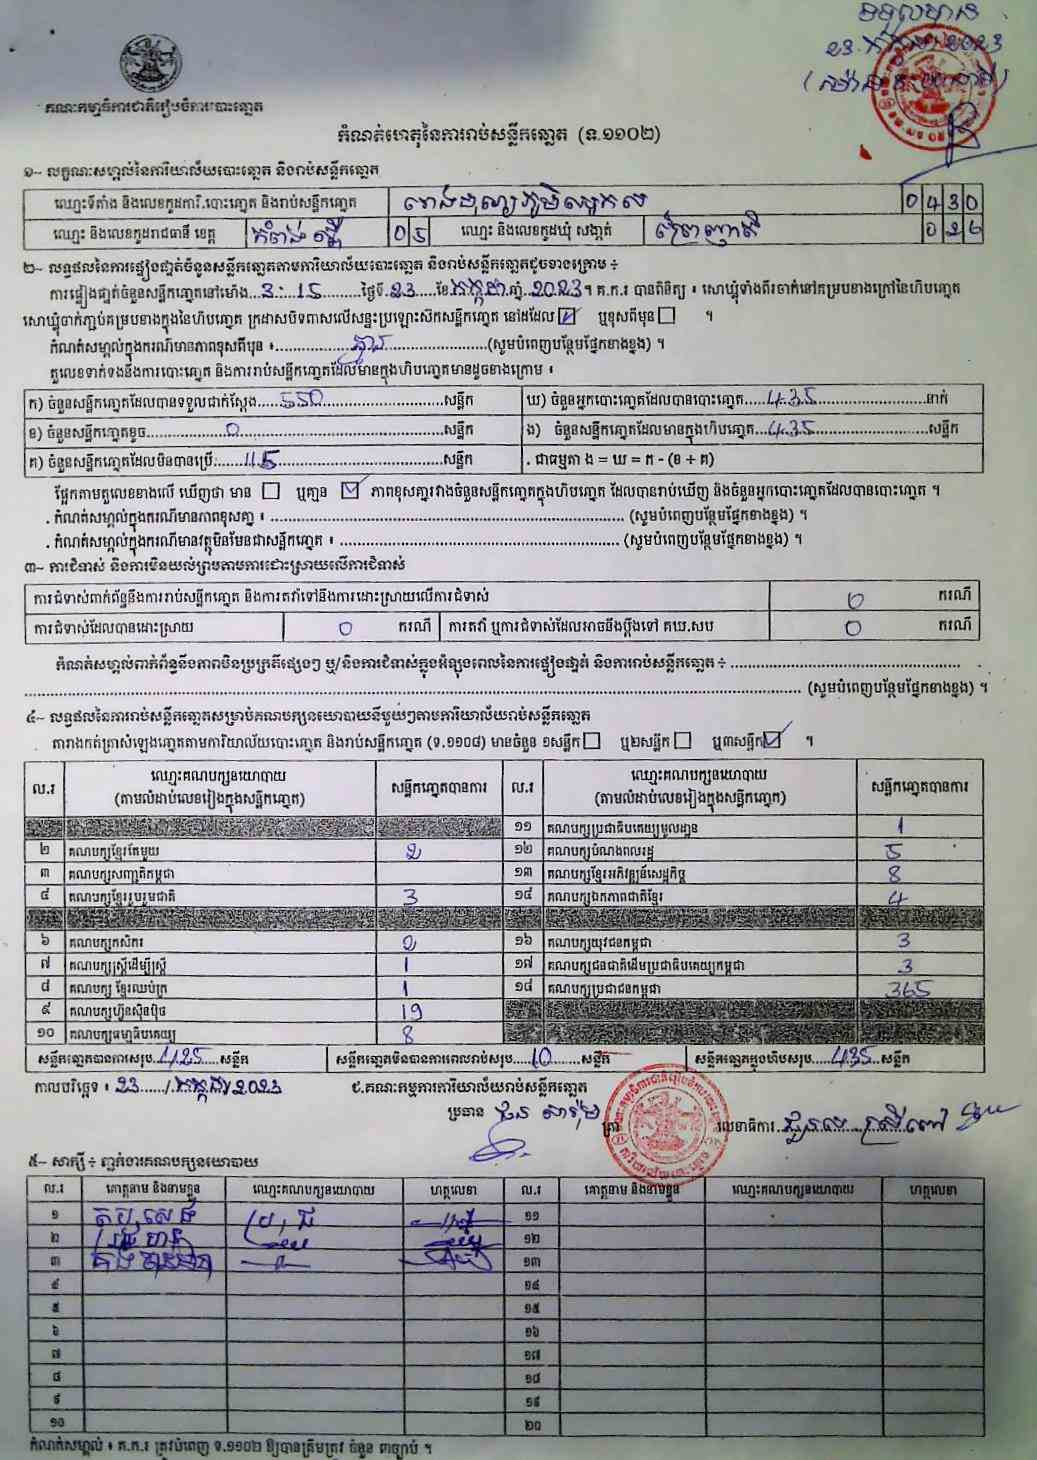 ២៣ កក្កដា 2023
គណៈកម្មាធិការជាតិរៀបចំការបោះឆ្នោត
កំណត់ហេតុនៃការរាប់សន្លឹកឆ្នោត (ទ.១១០២)
១~ លក្ខណៈសម្គាល់នៃការិយាល័យបោះឆ្នោត និងរាប់សន្លឹកឆ្នោត
ឈ្មោះទីតាំង និងលេខកូដការិ.បោះឆ្នោត និងរាប់សន្លឹកឆ្នោត 0430
ឈ្មោះ និងលេខកូដរាជធានី ខេត្ត កំពង់ស្ពឺ 05 ឈ្មោះ និងលេខកូដឃុំ សង្កាត់ 026
២~ លទ្ធផលនៃការផ្ទៀងផ្ទាត់ចំនួនសន្លឹកឆ្នោតតាមការិយាល័យបោះឆ្នោត និងរាប់សន្លឹកឆ្នោតដូចខាងក្រោម ៖
ការផ្ទៀងផ្ទាត់ចំនួនសន្លឹកឆ្នោតនៅម៉ោង 3:15 ថ្ងៃទី 23 ខែ កក្កដា ឆ្នាំ 2023 ។ គ.ក.រ បានពិនិត្យ ៖ សោឃ្លុំទាំងពីរចាក់នៅគម្របខាងក្រៅនៃហិបឆ្នោត
សោឃ្លុំចាក់ភ្ជាប់គម្របខាងក្នុងនៃហិបឆ្នោត ក្រដាសបិទពាសលើសន្ទះប្រឡោះស៊កសន្លឹកឆ្នោត នៅដដែល ☑ ឬខុសពីមុន ☐ ។
កំណត់សម្គាល់ក្នុងករណីមានភាពខុសពីមុន ៖ គ្មាន (សូមបំពេញបន្ថែមផ្នែកខាងខ្នង) ។
តួលេខទាក់ទងនឹងការបោះឆ្នោត និងការរាប់សន្លឹកឆ្នោតដែលមានក្នុងហិបឆ្នោតមានដូចខាងក្រោម ៖
ក) ចំនួនសន្លឹកឆ្នោតដែលបានទទួលជាក់ស្តែង 550 សន្លឹក ឃ) ចំនួនអ្នកបោះឆ្នោតដែលបានបោះឆ្នោត 435 នាក់
ខ) ចំនួនសន្លឹកឆ្នោតខូច 0 សន្លឹក ង) ចំនួនសន្លឹកឆ្នោតដែលមានក្នុងហិបឆ្នោត 435 សន្លឹក
គ) ចំនួនសន្លឹកឆ្នោតដែលមិនបានប្រើ 115 សន្លឹក . ជាធម្មតា ង = ឃ = ក - (ខ + គ)
ផ្អែកតាមតួលេខខាងលើ ឃើញថា មាន ☐ ឬគ្មាន ☑ ភាពខុសគ្នារវាងចំនួនសន្លឹកឆ្នោតក្នុងហិបឆ្នោត ដែលបានរាប់ឃើញ និងចំនួនអ្នកបោះឆ្នោតដែលបានបោះឆ្នោត ។
. កំណត់សម្គាល់ក្នុងករណីមានភាពខុសគ្នា ៖ (សូមបំពេញបន្ថែមផ្នែកខាងខ្នង) ។
. កំណត់សម្គាល់ក្នុងករណីមានវត្ថុមិនមែនជាសន្លឹកឆ្នោត ៖ (សូមបំពេញបន្ថែមផ្នែកខាងខ្នង) ។
៣~ ការជំទាស់ និងការមិនយល់ព្រមតាមការដោះស្រាយលើការជំទាស់
ការជំទាស់ពាក់ព័ន្ធនឹងការរាប់សន្លឹកឆ្នោត និងការតវ៉ាទៅនឹងការដោះស្រាយលើការជំទាស់ 0 ករណី
ការជំទាស់ដែលបានដោះស្រាយ 0 ករណី ការតវ៉ា ឬការជំទាស់ដែលអាចនឹងប្តឹងទៅ គឃ.សប 0 ករណី
កំណត់សម្គាល់ពាក់ព័ន្ធនឹងភាពមិនប្រក្រតីផ្សេងៗ ឬ/និងការជំទាស់ក្នុងអំឡុងពេលនៃការផ្ទៀងផ្ទាត់ និងការរាប់សន្លឹកឆ្នោត ៖
(សូមបំពេញបន្ថែមផ្នែកខាងខ្នង) ។
៤~ លទ្ធផលនៃការរាប់សន្លឹកឆ្នោតសម្រាប់គណបក្សនយោបាយនីមួយៗតាមការិយាល័យរាប់សន្លឹកឆ្នោត
តារាងកត់ត្រាសំឡេងឆ្នោតតាមការិយាល័យបោះឆ្នោត និងរាប់សន្លឹកឆ្នោត (ទ.១១០៨) មានចំនួន ១សន្លឹក ☐ ឬ២សន្លឹក ☐ ឬ៣សន្លឹក ☑ ។
ល.រ ឈ្មោះគណបក្សនយោបាយ (តាមលំដាប់លេខរៀងក្នុងសន្លឹកឆ្នោត) សន្លឹកឆ្នោតបានការ ល.រ ឈ្មោះគណបក្សនយោបាយ (តាមលំដាប់លេខរៀងក្នុងសន្លឹកឆ្នោត) សន្លឹកឆ្នោតបានការ
១១ គណបក្សប្រជាធិបតេយ្យមូលដ្ឋាន 1
២ គណបក្សខ្មែរតែមួយ 2 ១២ គណបក្សបំណងពលរដ្ឋ 5
៣ គណបក្សសញ្ជាតិកម្ពុជា ១៣ គណបក្សខ្មែរអភិវឌ្ឍន៍សេដ្ឋកិច្ច 8
៤ គណបក្សខ្មែររួបរួមជាតិ 3 ១៤ គណបក្សឯកភាពជាតិខ្មែរ 4
៦ គណបក្សកសិករ 2 ១៦ គណបក្សយុវជនកម្ពុជា 3
៧ គណបក្សស្ត្រីដើម្បីស្ត្រី 1 ១៧ គណបក្សជនជាតិដើមប្រជាធិបតេយ្យកម្ពុជា 3
៨ គណបក្ស ខ្មែរឈប់ក្រ 1 ១៨ គណបក្សប្រជាជនកម្ពុជា 365
៩ គណបក្សហ៊្វុនស៊ិនប៉ិច 19
១០ គណបក្សធម្មាធិបតេយ្យ 8
សន្លឹកឆ្នោតបានការសរុប 425 សន្លឹក សន្លឹកឆ្នោតមិនបានការពេលរាប់សរុប 10 សន្លឹក សន្លឹកឆ្នោតក្នុងហិបសរុប 435 សន្លឹក
កាលបរិច្ឆេទ ៖ 23 / កក្កដា / 2023 ជ.គណៈកម្មការការិយាល័យរាប់សន្លឹកឆ្នោត
ប្រធាន ត្រា លេខាធិការ
៥~ សាក្សី ៖ ភ្នាក់ងារគណបក្សនយោបាយ
ល.រ គោត្តនាម និងនាមខ្លួន ឈ្មោះគណបក្សនយោបាយ ហត្ថលេខា ល.រ គោត្តនាម និងនាមខ្លួន ឈ្មោះគណបក្សនយោបាយ ហត្ថលេខា
១ ប្រ.ជ ១១
២ ១២
៣ ១៣
៤ ១៤
៥ ១៥
៦ ១៦
៧ ១៧
៨ ១៨
៩ ១៩
១០ ២០
កំណត់សម្គាល់ ៖ គ.ក.រ ត្រូវបំពេញ ទ.១១០២ ឱ្យបានត្រឹមត្រូវ ចំនួន ៣ច្បាប់ ។